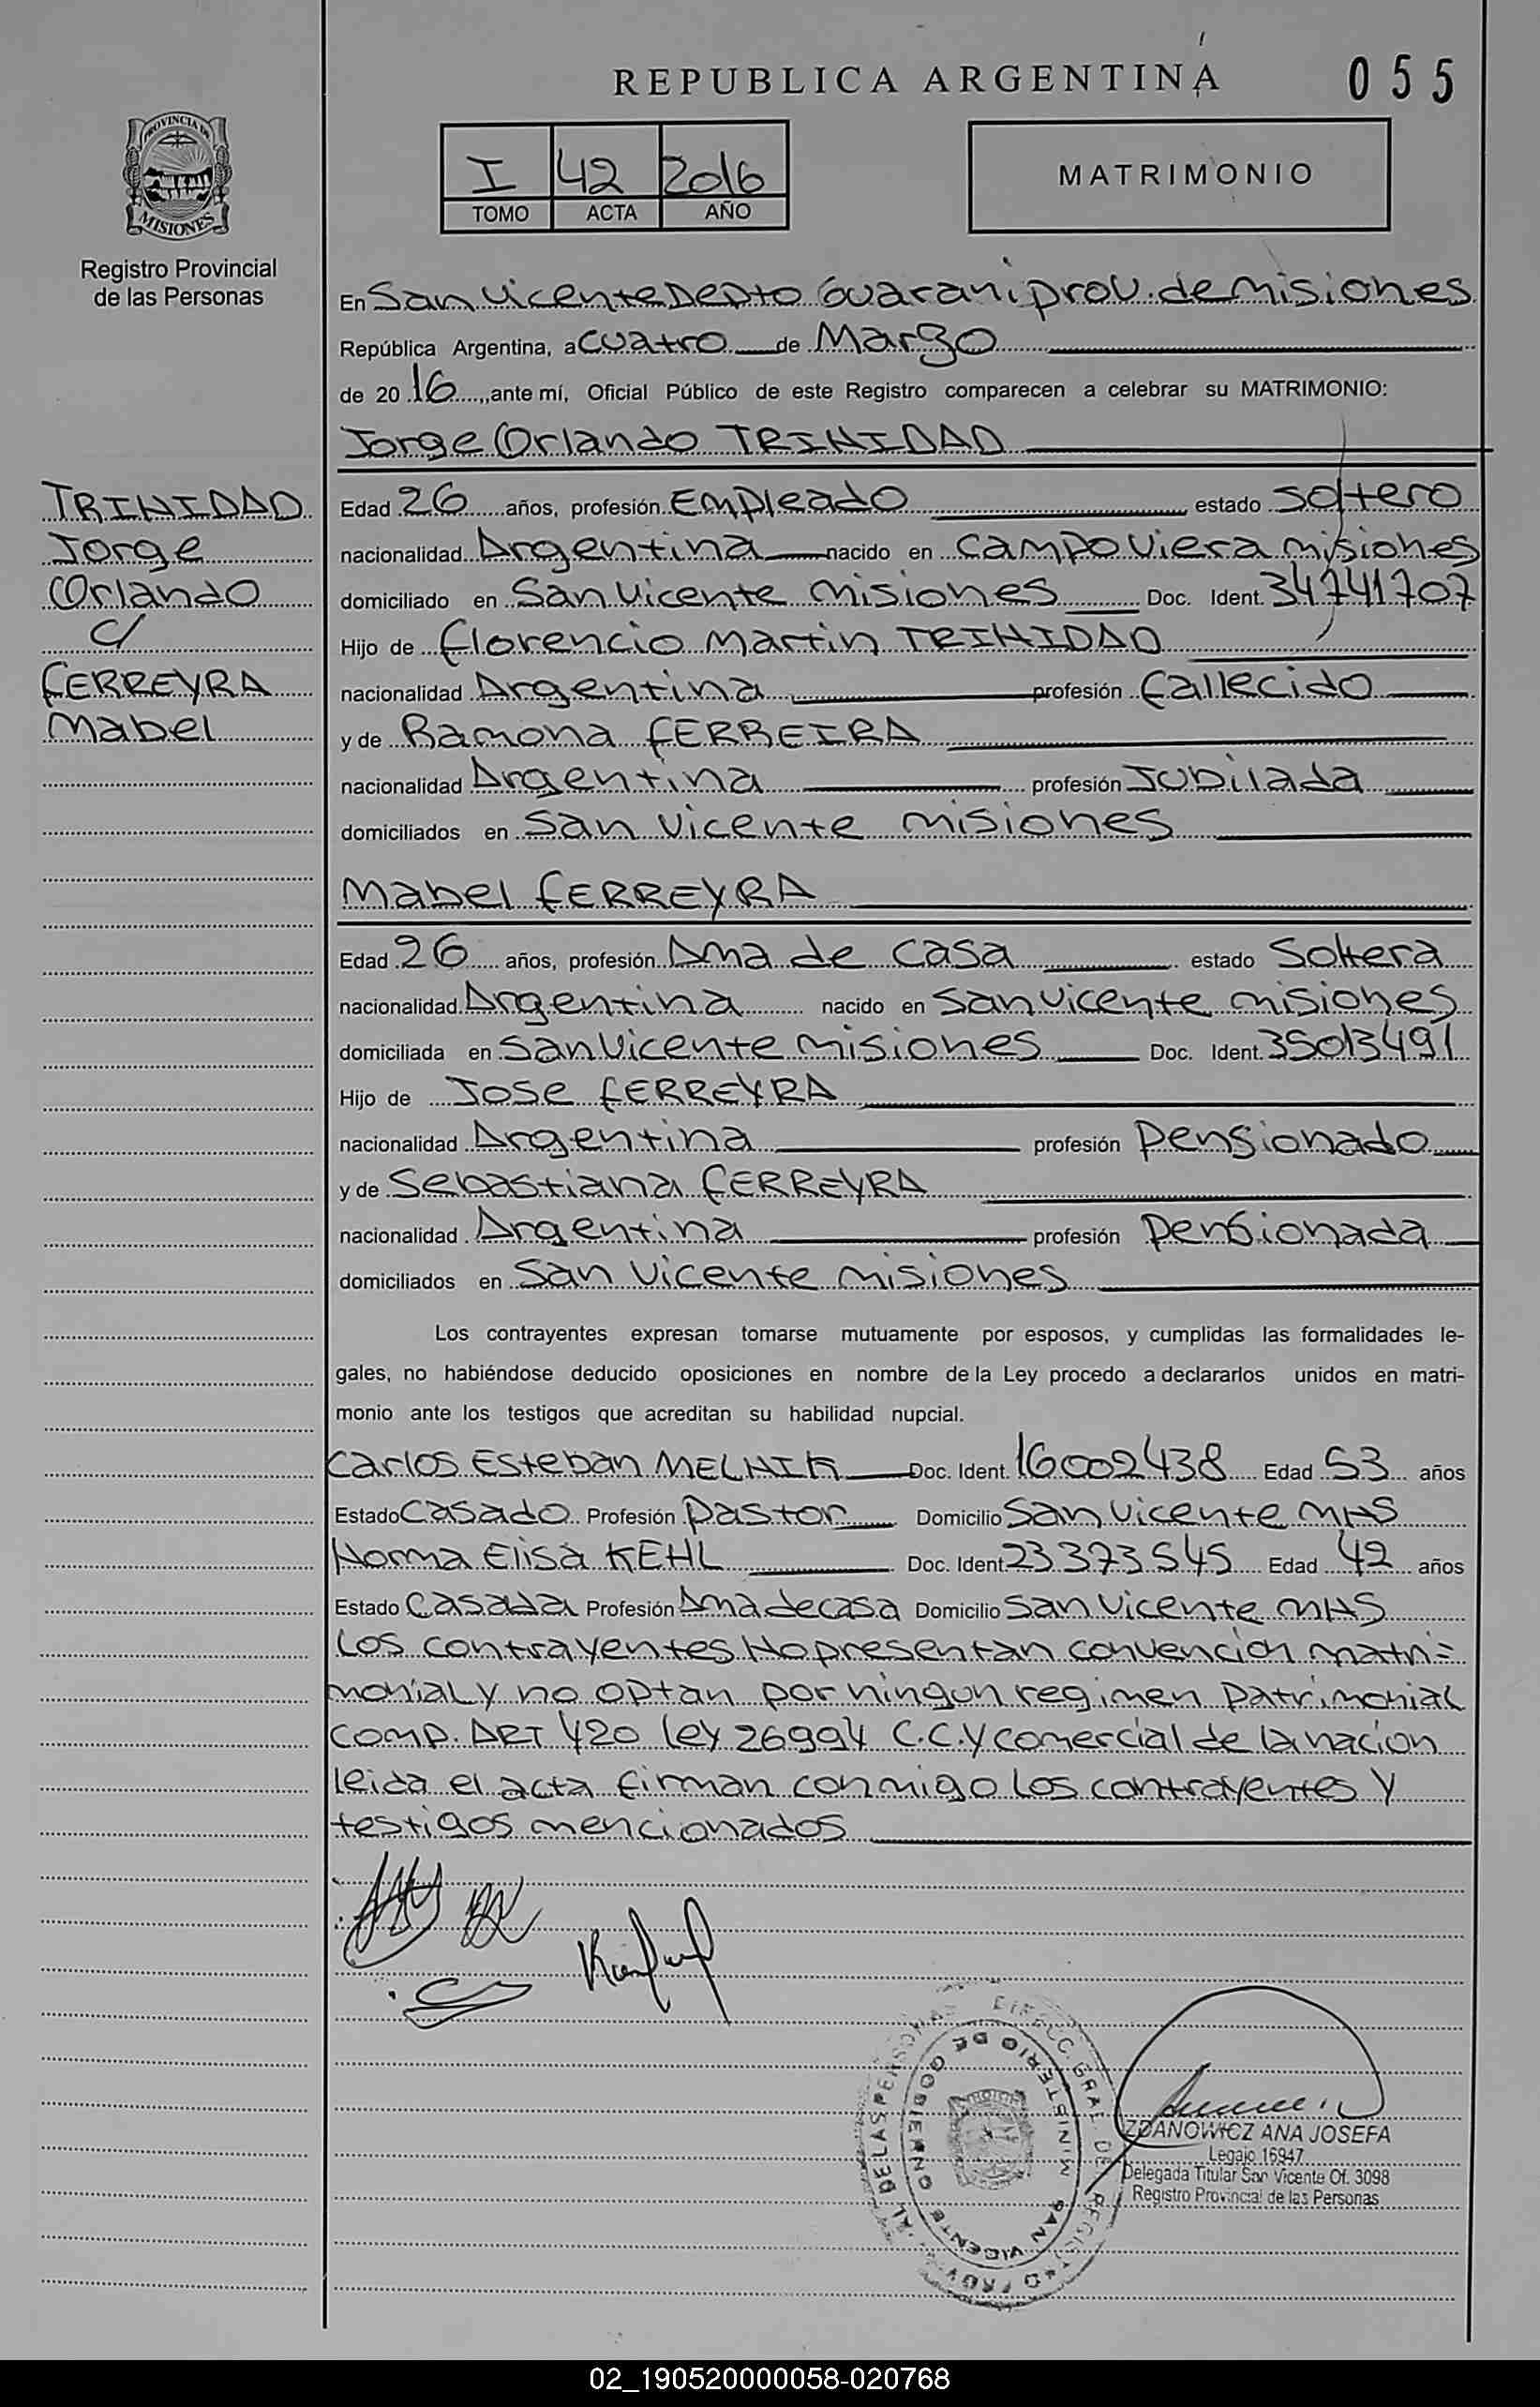 REPUBLICA ARGENTINA
055
PROVINCIA DE
MISIONES
Registro Provincial
de las Personas
I 42 2016
TOMO ACTA AÑO
MATRIMONIO
En San Vicente Depto Guarani prov. de Misiones
República Argentina, a cuatro de Marzo
de 2016, ante mí, Oficial Público de este Registro comparecen a celebrar su MATRIMONIO:
Jorge Orlando TRINIDAD
TRINIDAD
Jorge
Orlando
c/
FERREYRA
Mabel
Edad 26 años, profesión Empleado estado soltero
nacionalidad Argentina nacido en Campo Viera misiones
domiciliado en San Vicente misiones Doc. Ident. 34741707
Hijo de Florencio Martin TRINIDAD
nacionalidad Argentina profesión fallecido
y de Ramona FERREIRA
nacionalidad Argentina profesión Jubilada
domiciliados en San Vicente misiones
Mabel FERREYRA
Edad 26 años, profesión Ama de casa estado Soltera
nacionalidad Argentina nacido en San Vicente misiones
domiciliada en San Vicente misiones Doc. Ident. 35013491
Hijo de Jose FERREYRA
nacionalidad Argentina profesión pensionado
y de Sebastiana FERREYRA
nacionalidad Argentina profesión pensionada
domiciliados en San Vicente misiones
Los contrayentes expresan tomarse mutuamente por esposos, y cumplidas las formalidades le-
gales, no habiéndose deducido oposiciones en nombre de la Ley procedo a declararlos unidos en matri-
monio ante los testigos que acreditan su habilidad nupcial.
Carlos Esteban MELNIK Doc. Ident. 16002438 Edad 53 años
Estado Casado Profesión Pastor Domicilio San Vicente MNS
Norma Elisa KEHL Doc. Ident. 23373545 Edad 42 años
Estado Casada Profesión Ama de casa Domicilio San Vicente MNS
Los contrayentes No presentan convención matri=
monial y no optan por ningun regimen patrimonial
comp. ART 420 ley 26994 C.C. y comercial de la nacion
leida el acta firman conmigo los contrayentes y
testigos mencionados
DIRECC. GRAL. DE REGISTRO PROV. AL DE LAS PERSONAS
MINISTERIO DE GOBIERNO
SAN VICENTE
ZDANOWICZ ANA JOSEFA
Legajo 16947
Delegada Titular San Vicente Of. 3098
Registro Provincial de las Personas
02_190520000058-020768